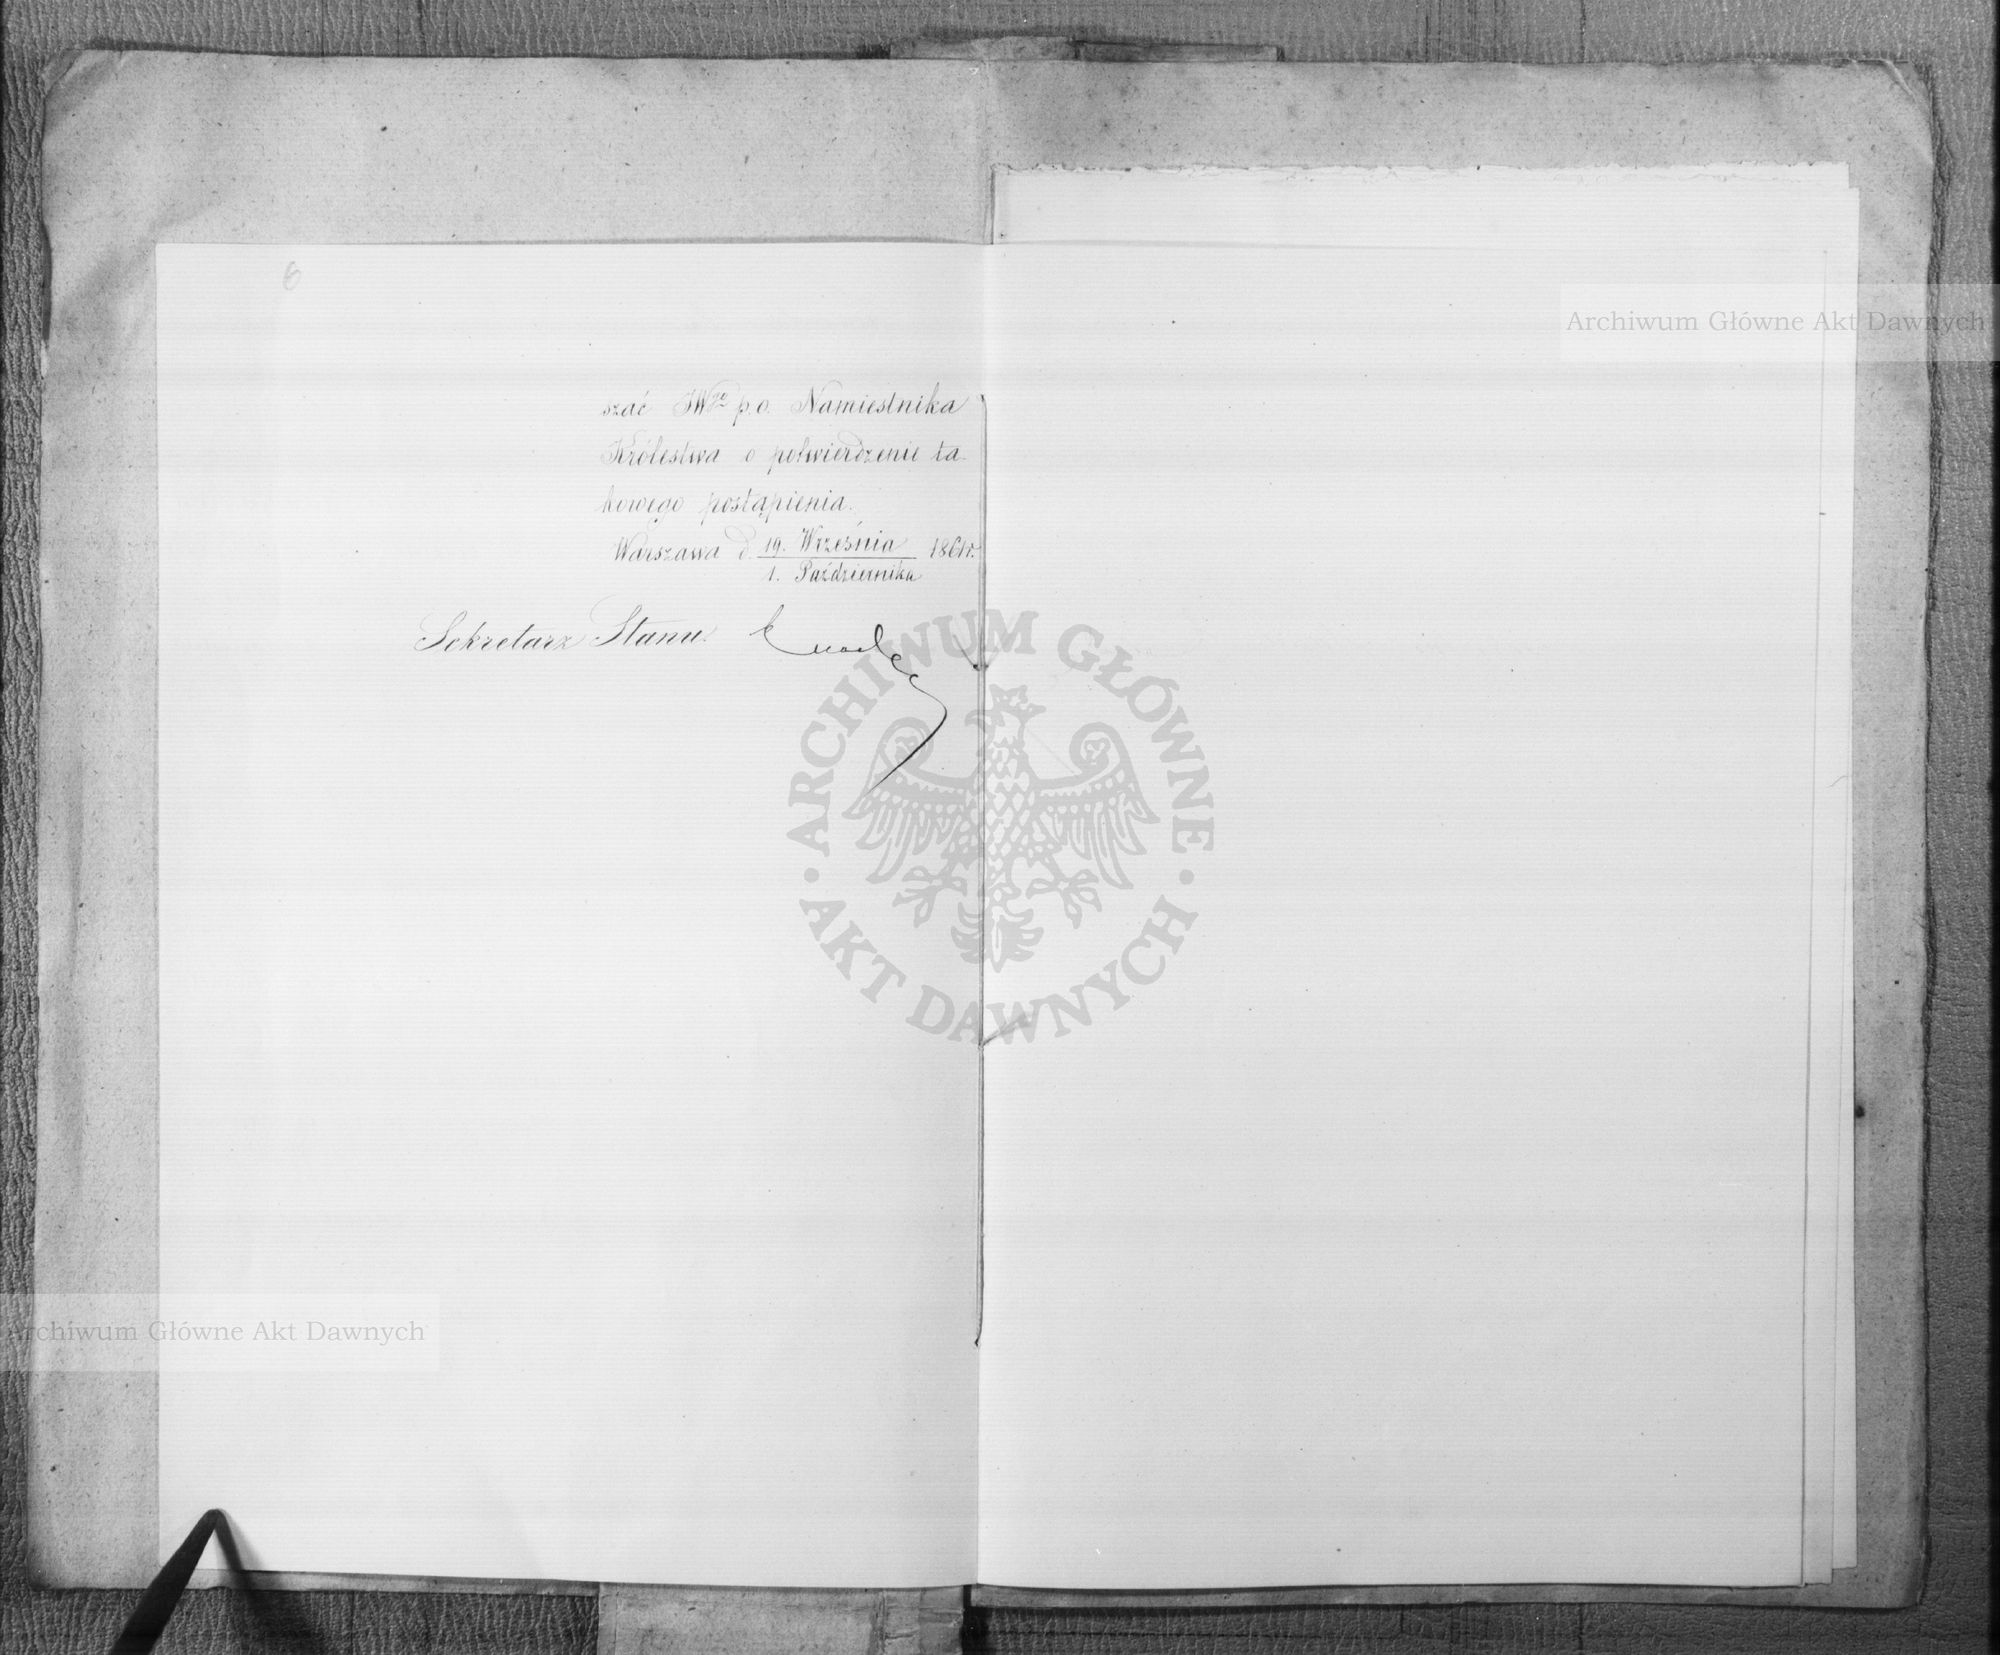 6
szać JWgo p.o. Namiestnika
Królestwa o potwierdzenie ta
kowego postąpienia.
Warszawa d. 19. Września 1861r.
1. Października
Sekretarz Stanu
Archiwum Główne Akt Dawnych
ARCHIWUM GŁÓWNE
AKT DAWNYCH
Archiwum Główne Akt Dawnych